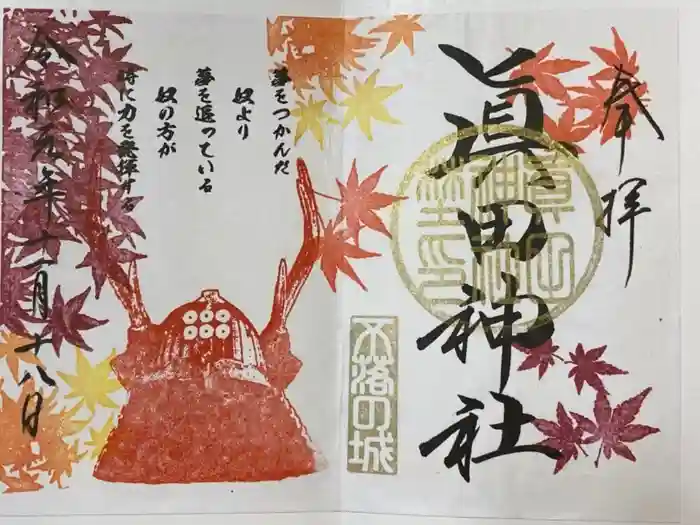 奉拝
眞田神社
眞田神社之印
不落の城
夢をつかんだ
奴より
夢を追っている
奴の方が
時に力を発揮する
令和元年十一月十八日